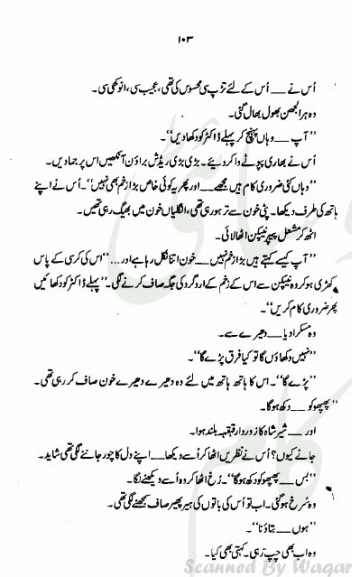 ۱۰۳
اُس نے __ اُس کے لئے تڑپ سی محسوس کی تھی، عجیب سی، انوکھی سی۔
وہ ہر الجھن بھول بھال گئی۔
’’آپ __ وہاں پہنچ کر پہلے ڈاکٹر کو دکھا دیں‘‘۔
اُس نے بھاری پپوٹے وا کر دیئے۔ بڑی بڑی ریڈش براؤن آنکھیں اس پر جما دیں۔
’’وہاں کئی ضروری کام ہیں مجھے __ اور پھر یہ کوئی خاص بڑا زخم بھی نہیں‘‘۔ اُس نے اپنے
ہاتھ کی طرف دیکھا۔ پٹی خون سے تر ہو رہی تھی، انگلیاں خون میں بھیگ رہی تھیں۔
اٹھ کر مشعل پیپر نیپکن اٹھا لائی۔
’’آپ کیسے کہتے ہیں بڑا زخم نہیں __ خون اتنا نکل رہا ہے اور...‘‘ اُس کی کرسی کے پاس
کھڑی ہو کر وہ نیپکن سے اس کے زخم کے اردگرد کی جگہ صاف کرنے لگی۔ ’’پہلے ڈاکٹر کو دکھائیں
پھر ضروری کام کریں‘‘۔
وہ مسکرا دیا __ دھیرے سے۔
’’نہیں دکھاؤں گا تو کیا فرق پڑے گا‘‘۔
’’پڑے گا‘‘۔ اس کا ہاتھ ہاتھ میں لئے وہ دھیرے دھیرے خون صاف کر رہی تھی۔
’’پھپھو کو __ دکھ ہو گا۔
اور __ شیر شاہ کا زوردار قہقہہ بلند ہوا۔
جانے کیوں؟ اُس نے نظریں اٹھا کر اُسے دیکھا __ اپنے دل کا چور جاننے لگی تھی شاید۔
’’بس __ پھپھو کو دکھ ہو گا‘‘۔ رُخ اٹھا کر وہ اُسے دیکھنے لگا۔
وہ سُرخ ہو گئی۔ اب تو اُس کی باتوں کی ہیر پھیر صاف سمجھنے لگی تھی۔
’’ہوں __ بتاؤ نا‘‘۔
وہ اب بھی چپ رہی۔ کہتی بھی کیا۔
Scanned By Waqar